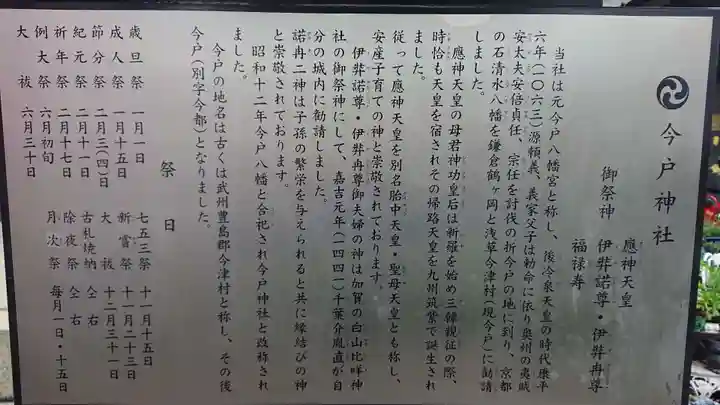 今戸神社
御祭神 應神天皇
伊弉諾尊・伊弉冉尊
福禄寿
当社は元今戸八幡宮と称し、後冷泉天皇の時代康平
六年(一〇六三)源頼義、義家父子は勅命に依り奥州の夷賊
安太夫安倍貞任、宗任を討伐の折今戸の地に到り、京都
の石清水八幡を鎌倉鶴ヶ岡と浅草今津村(現今戸)に勧請
しました。
應神天皇の母君神功皇后は新羅を始め三韓親征の際、
時恰も天皇を宿されその帰路天皇を九州筑紫で誕生され
ました。
従って應神天皇を別名胎中天皇・聖母天皇とも称し、
安産子育ての神と崇敬されております。
伊弉諾尊・伊弉冉尊御夫婦の神は加賀の白山比咩神
社の御祭神にして、嘉吉元年(一四四一)千葉介胤直が自
分の城内に勧請しました。
諾冉二神は子孫の繁栄を与えられると共に縁結びの神
と崇敬されております。
昭和十二年今戸八幡と合祀され今戸神社と改称され
ました。
今戸の地名は古くは武州豊島郡今津村と称し、その後
今戸(別字今都)となりました。
祭日
歳旦祭 一月一日
成人祭 一月十五日
節分祭 二月三(四)日
紀元祭 二月十一日
祈年祭 二月十七日
例大祭 六月初旬
大祓 六月三十日
七五三祭 十一月十五日
新嘗祭 十一月二十三日
大祓 十二月三十一日
古札焼納 仝右
除夜祭 仝右
月次祭 毎月一日・十五日